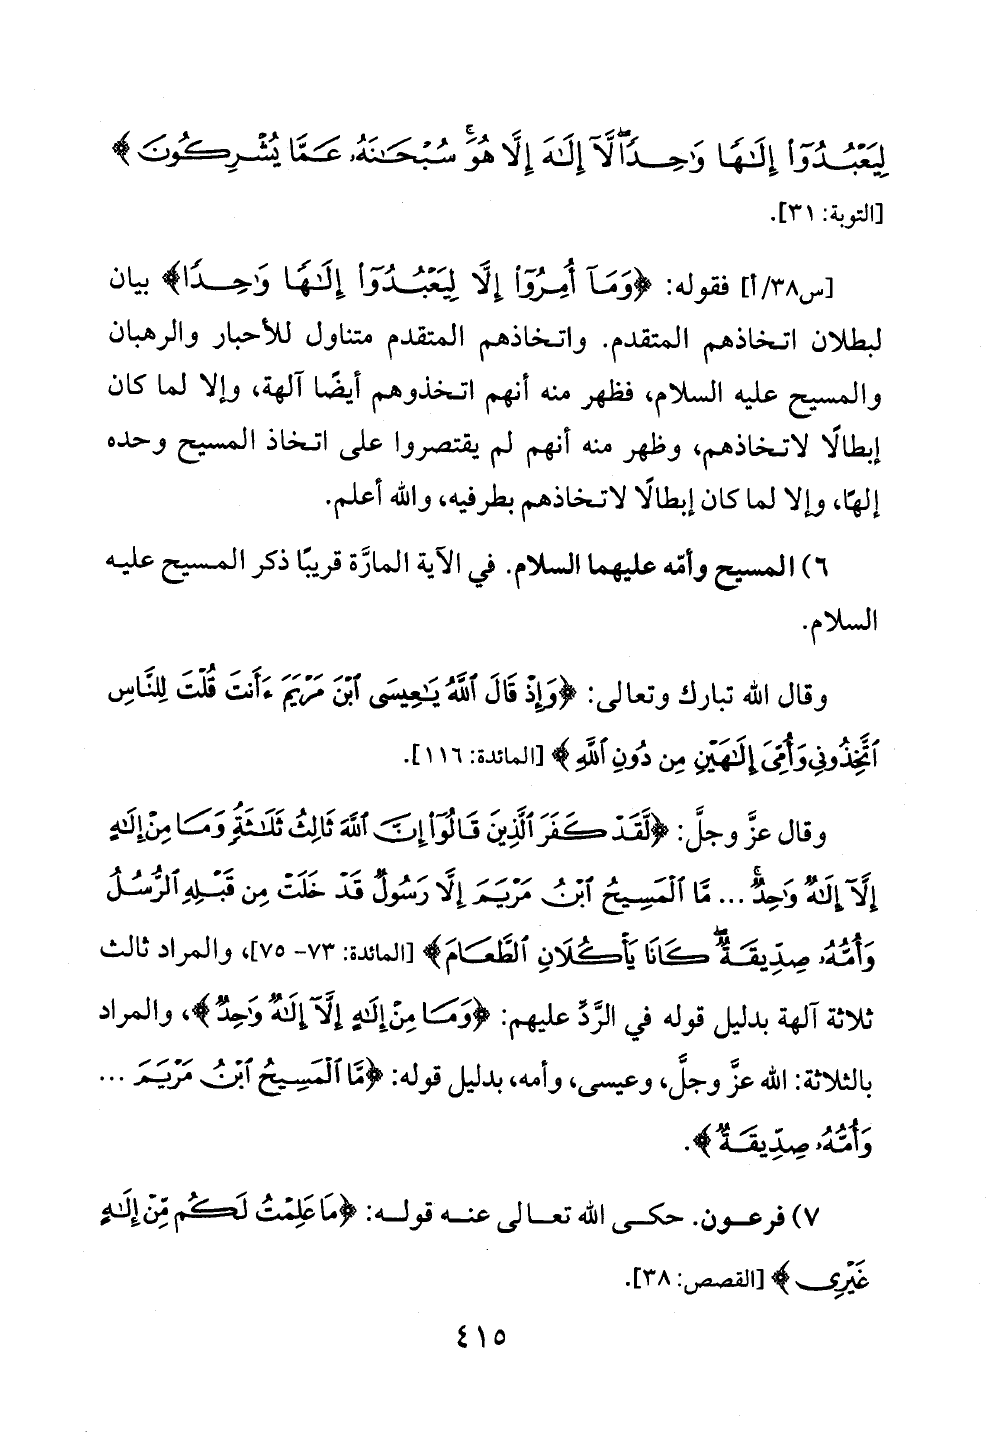 لِيَعْبُدُوٓا۟ إِلَـٰهًا وَٰحِدًا ۖ لَّآ إِلَـٰهَ إِلَّا هُوَ ۚ سُبْحَـٰنَهُۥ عَمَّا يُشْرِكُونَ ﴾
[التوبة: ٣١].
[س٣٨/أ] فقوله: ﴿وَمَآ أُمِرُوٓا۟ إِلَّا لِيَعْبُدُوٓا۟ إِلَـٰهًا وَٰحِدًا﴾ بيان
لبطلان اتخاذهم المتقدم. واتخاذهم المتقدم متناول للأحبار والرهبان
والمسيح عليه السلام، فظهر منه أنهم اتخذوهم أيضًا آلهة، وإلا لما كان
إبطالًا لاتخاذهم، وظهر منه أنهم لم يقتصروا على اتخاذ المسيح وحده
إلهًا، وإلا لما كان إبطالًا لاتخاذهم بطرفيه، والله أعلم.
٦) المسيح وأمّه عليهما السلام. في الآية المارَّة قريبًا ذكر المسيح عليه
السلام.
وقال الله تبارك وتعالى: ﴿وَإِذْ قَالَ ٱللَّهُ يَـٰعِيسَى ٱبْنَ مَرْيَمَ ءَأَنتَ قُلْتَ لِلنَّاسِ
ٱتَّخِذُونِى وَأُمِّىَ إِلَـٰهَيْنِ مِن دُونِ ٱللَّهِ ﴾ [المائدة: ١١٦].
وقال عزَّ وجلَّ: ﴿لَّقَدْ كَفَرَ ٱلَّذِينَ قَالُوٓا۟ إِنَّ ٱللَّهَ ثَالِثُ ثَلَـٰثَةٍ وَمَا مِنْ إِلَـٰهٍ
إِلَّآ إِلَـٰهٌ وَٰحِدٌ ۚ ... مَّا ٱلْمَسِيحُ ٱبْنُ مَرْيَمَ إِلَّا رَسُولٌ قَدْ خَلَتْ مِن قَبْلِهِ ٱلرُّسُلُ
وَأُمُّهُۥ صِدِّيقَةٌ ۖ كَانَا يَأْكُلَانِ ٱلطَّعَامَ﴾ [المائدة: ٧٣- ٧٥]، والمراد ثالث
ثلاثة آلهة بدليل قوله في الرَّدِّ عليهم: ﴿وَمَا مِنْ إِلَـٰهٍ إِلَّآ إِلَـٰهٌ وَٰحِدٌ﴾، والمراد
بالثلاثة: الله عزَّ وجلَّ، وعيسى، وأمه، بدليل قوله: ﴿مَّا ٱلْمَسِيحُ ٱبْنُ مَرْيَمَ ...
وَأُمُّهُۥ صِدِّيقَةٌ ﴾.
٧) فرعون. حكى الله تعالى عنه قوله: ﴿مَا عَلِمْتُ لَكُم مِّنْ إِلَـٰهٍ
غَيْرِى ﴾ [القصص: ٣٨].
٤١٥